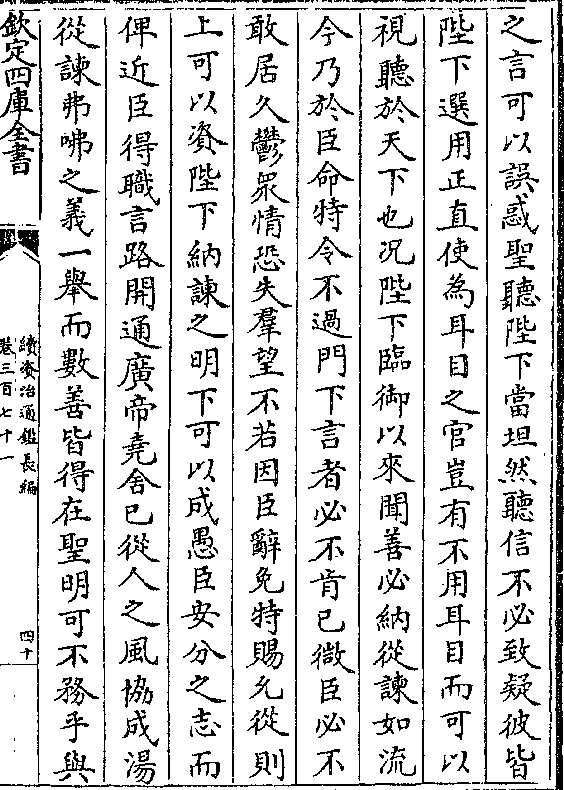 之言可以誤惑聖聽陛下當坦然聽信不必致疑彼皆
陛下選用正直使為耳目之官豈有不用耳目而可以
視聽於天下也况陛下臨御以來聞善必納從諫如流
今乃於臣命特令不過門下言者必不肯已微臣必不
敢居久鬱衆情恐失羣望不若因臣辭免特賜允從則
上可以資陛下納諫之明下可以成愚臣安分之志而
俾近臣得職言路開通廣帝堯舍已從人之風協成湯
從諫弗咈之義一舉而數善皆得在聖明可不務乎與
欽定四庫全書
續資治通鑑長編
卷三百七十一
四十